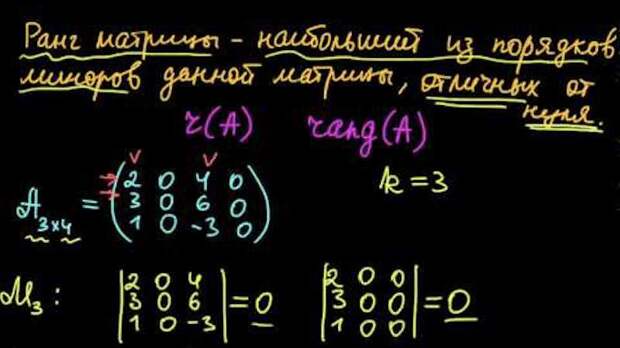 Ранг матрицы - наибольший из порядков
миноров данной матрицы, отличных от
нуля.
r(A) rang(A)
V V
A3×4 = (2 0 4 0
3 0 6 0
1 0 -3 0)
k = 3
M3: |2 0 4
3 0 6
1 0 -3| = 0
|2 0 0
3 0 0
1 0 0| = 0